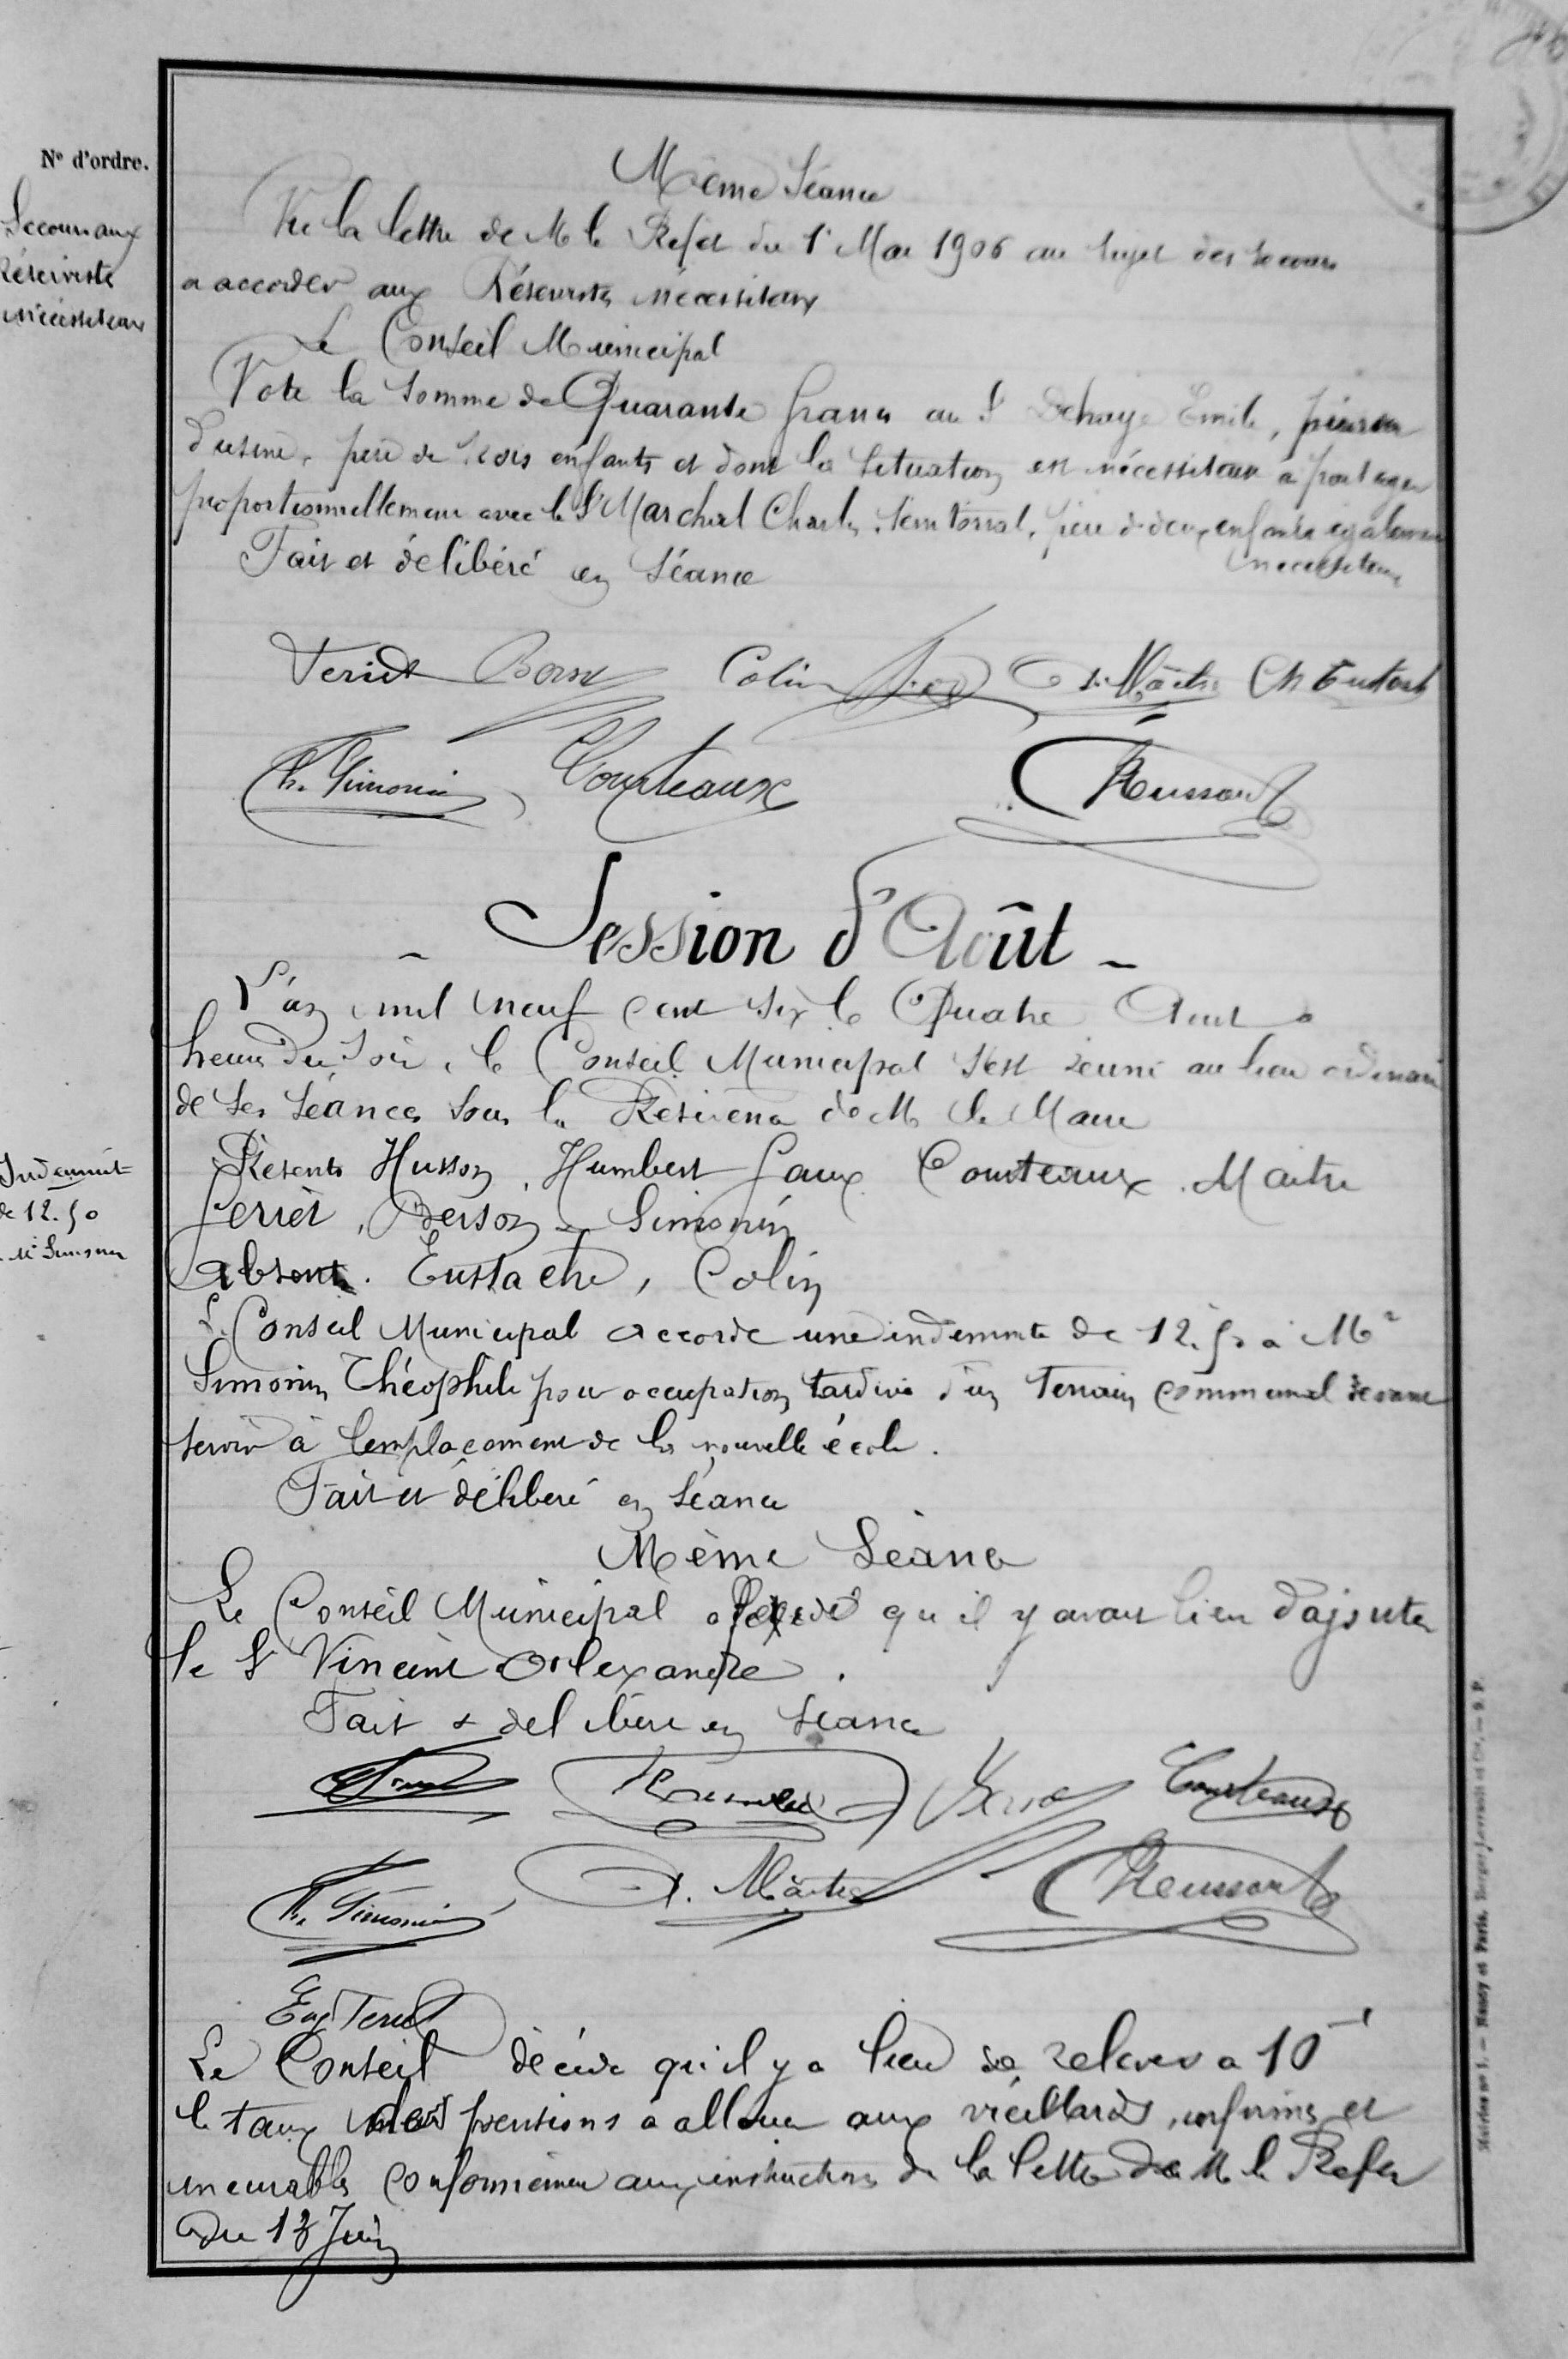 N° d'ordre.
Secours aux
Réserviste
nécessiteux
Même Séance
Vu la lettre de M le Préfet du 1er Mai 1906 au sujet des secours
a accorder aux Réservistes nécessiteux
Le Conseil Municipal
Vote la somme de Quarante francs au Sr Dehaye Emile,
d'usine, père de trois enfants et dont la situation est nécessiteuse à partager
proportionnellement avec le Sr Marchal Charles, territorial, père de deux enfants également
nécessiteux
Fait et délibéré en Séance
Feriet Colin D. Maître Ch Eustach
Th. Simonin Courteaux Husson
- Session d'Août -
L'an mil neuf cent six le Quatre Aout a
heures du Soir, le Conseil Municipal s'est réuni au lieu ordinaire
de ses séances sous la Présidence de M le Maire
Indemnité
de 12.50
Mr Simonin
Présents Husson, Humbert Gaux Courteaux, Maitre
Ferriet, Berson, Simonin
Absents. Eustache, Colin
Le Conseil Municipal accorde une indemnité de 12.50 à Mr
Simonin Théophile pour occupation tardive d'un terrain communal devant
servir à l'emplacement de la nouvelle école.
Fait et délibéré en séance
Même Séance
Le Conseil Municipal a décidé qu'il y avait lieu d'ajouter
le Sr Vincent Alexandre.
Fait & delibéré en séance
Courteaux
Th. Simonin D. Maitre Husson
Eug Feriet
Le Conseil décide qu'il y a lieu de relever a 10 f
le taux des pensions à allouer aux vieillards, infirmes et
incurables conformément aux instructions de la lettre de M le Préfet
du 13 Juin
Nancy et Paris. Berger-Levrault et Cie.